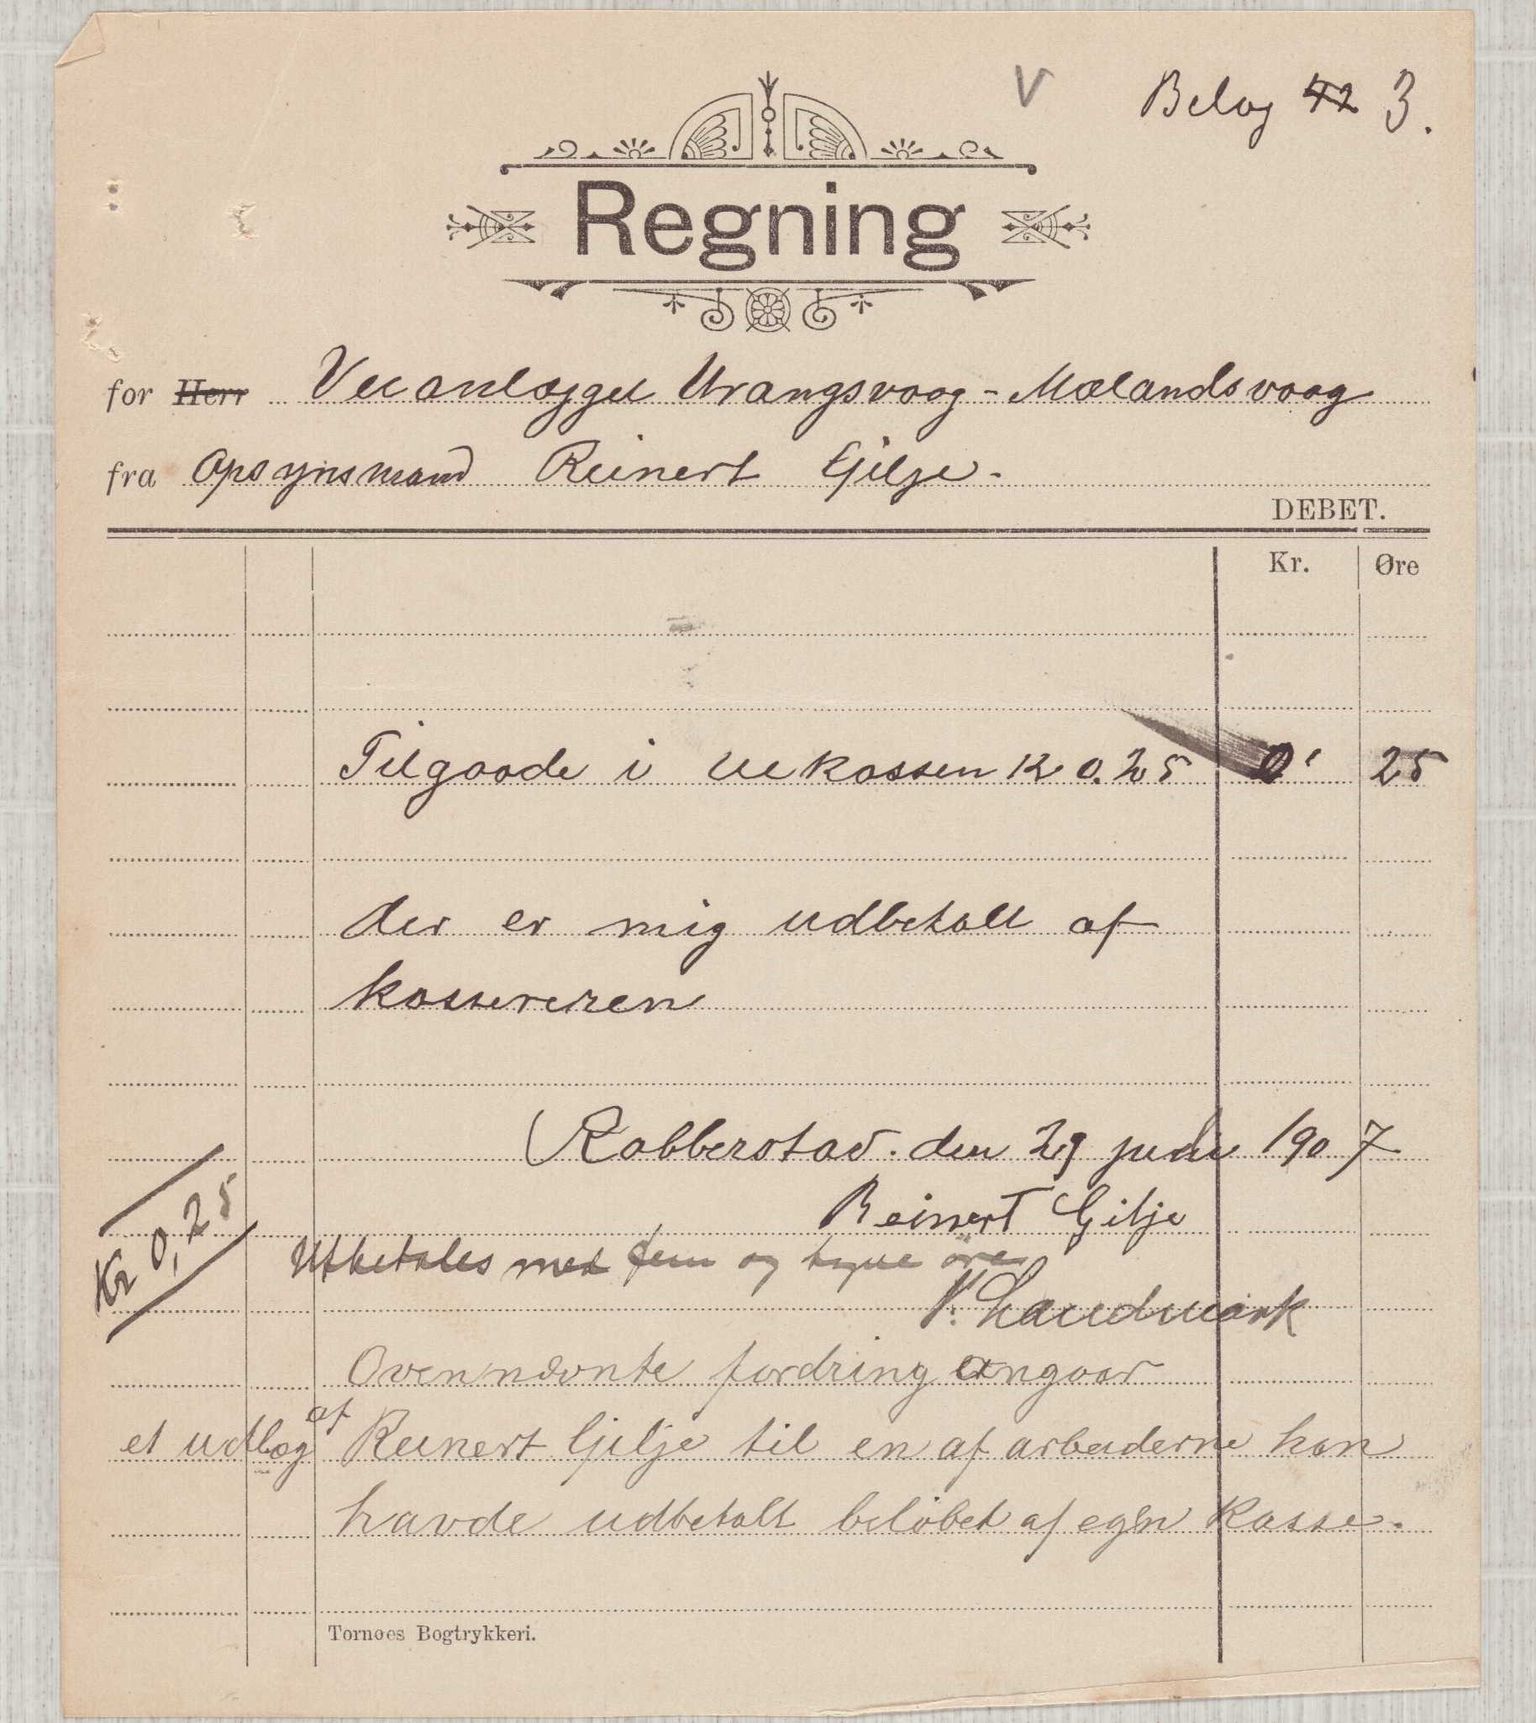 V Belag 42 3.
Regning
for Herr Veianlægget Urangsvaag - Mælandsvaag
fra Opsynsmand Reinert Gilje -
DEBET.
Kr. Øre
Tilgaade i kassen Kr 0.25 0' 25
der er mig udbetalt af
kassereren
Rabberstad. den 29 juni 1907
Reinert Gilje
Kr 0,25
Utbetales med fem og tyve øre
V. Landmark
Ovennævnte fordring angaar
et udlæg af Reinert Gilje til en af arbeiderne han
havde udbetalt beløbet af egen Kasse.
Tornøes Bogtrykkeri.